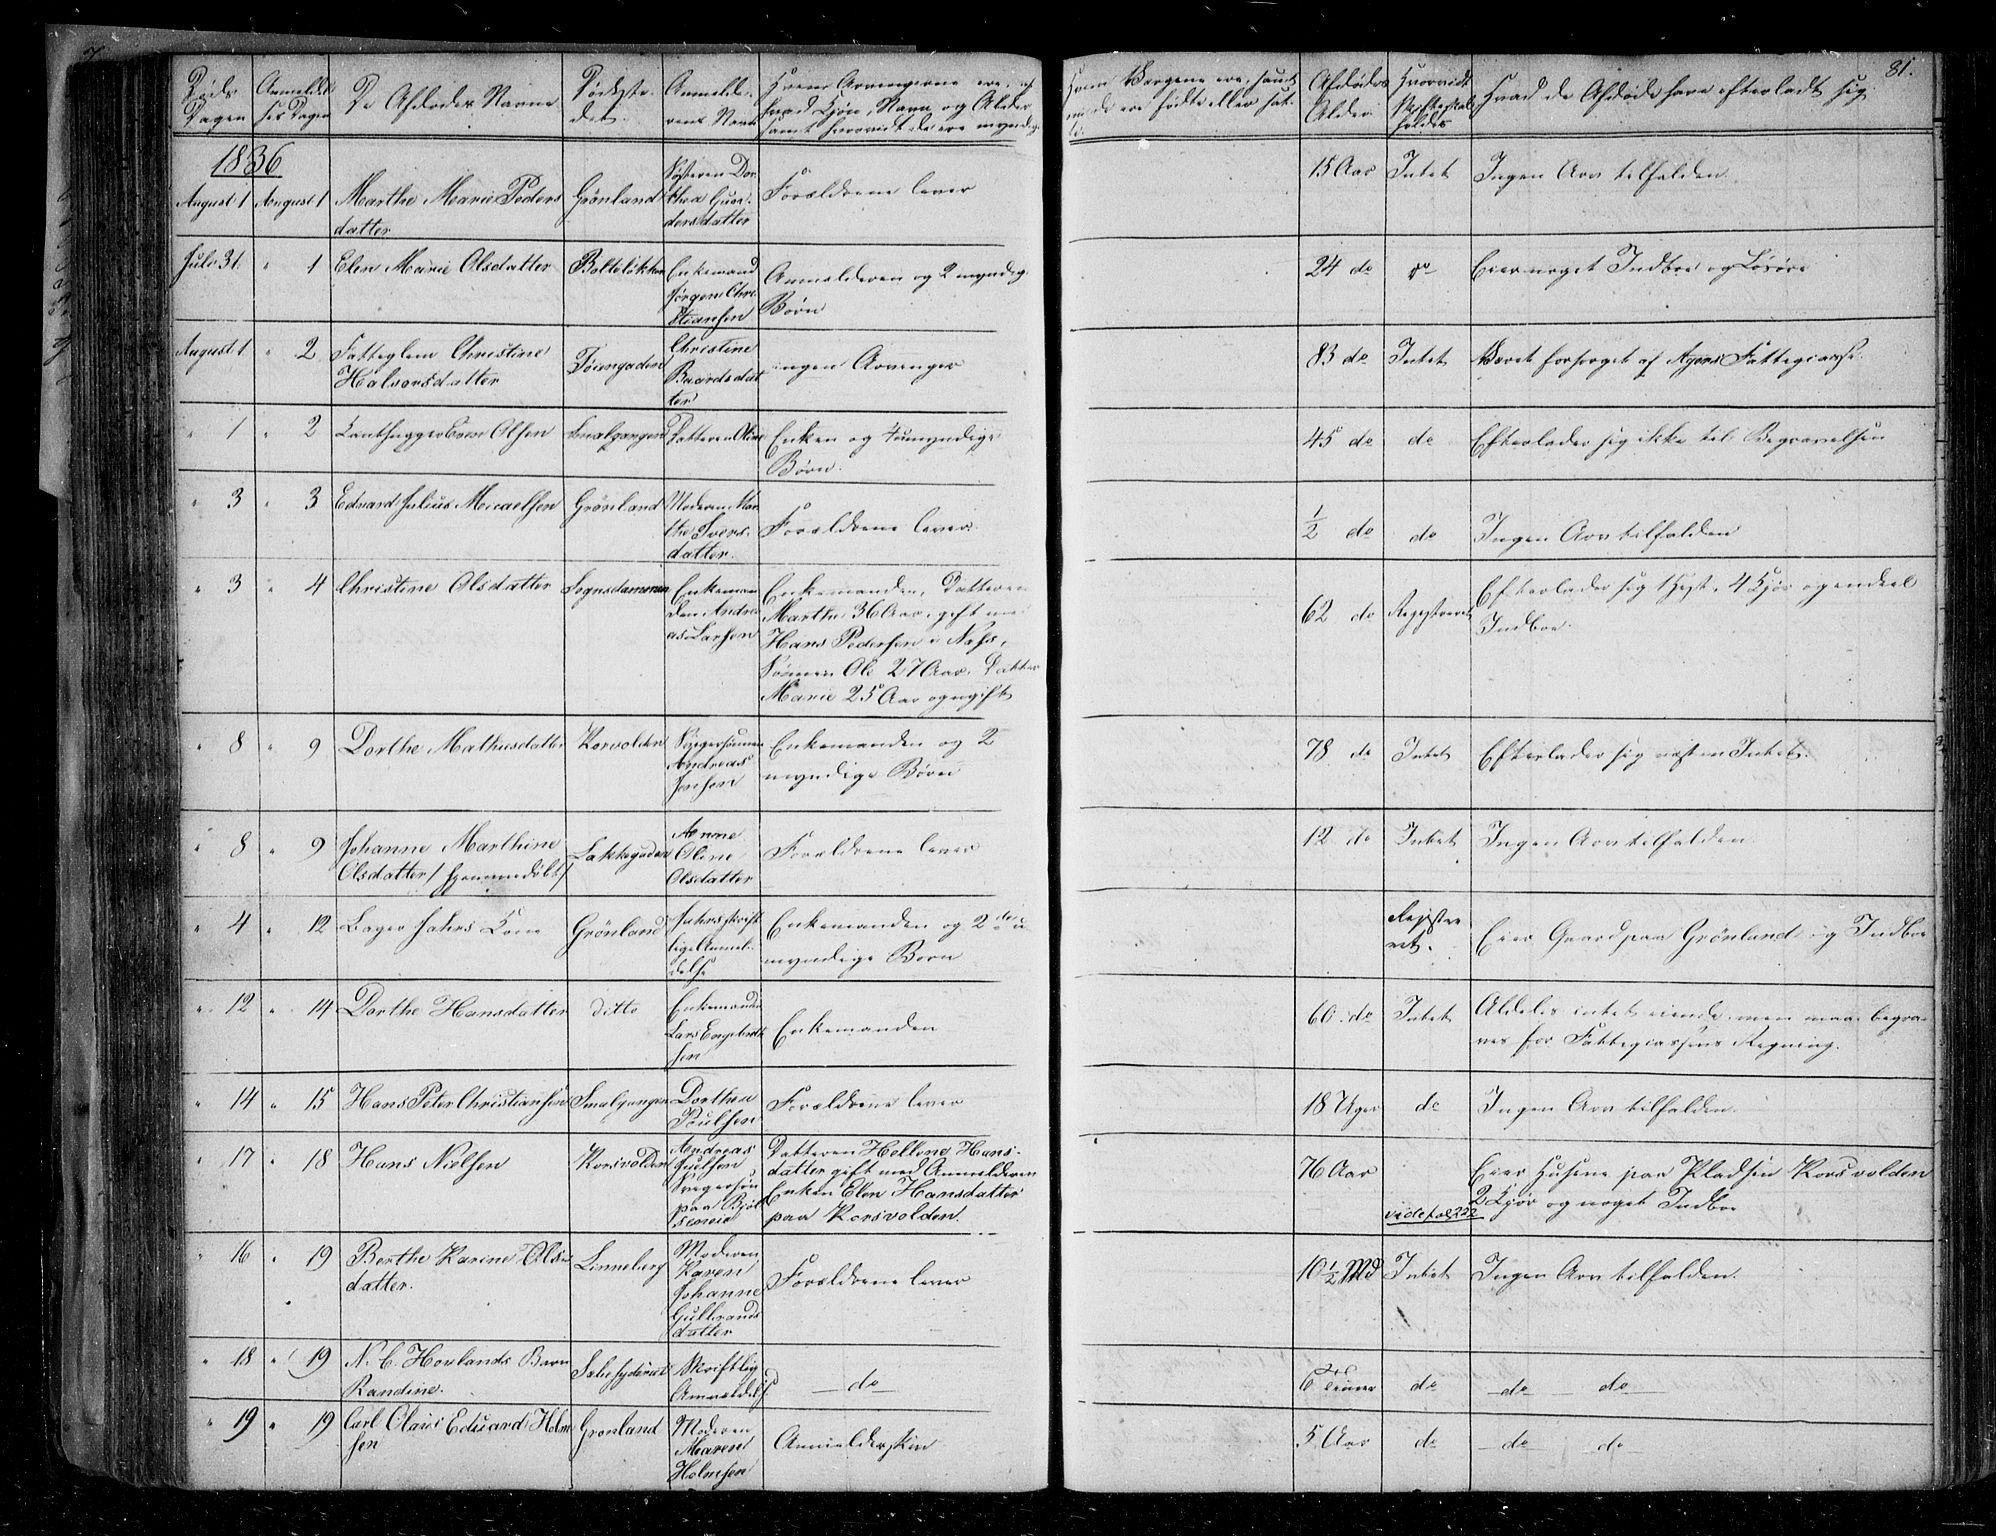 81.
Døds Dagen
Anmeldel ses Dagen
De Afdødes Navne
Dødste det.
Anmelde rens Navn
Hvem Arvingerne ere, af
hvad Kjøn, Navn og Alder
samt hvorvidt de ere myndige
Hvem Værgerne ere, samt
Afdødes Alder
Hvorvidt Skifte skal holdes
Hvad de Afdøde have efterladt sig
1836
August 1 August 1 Marthe Marie Peders datter Grønland Søsteren Dorthea Gunndersdatter Forældrene lever 15 Aar Intet Ingen Arv tilfalden
Juli 31. " 1 Elen Marie Olsdatter Bolteløkken Enkemand Jørgen Christiansen Anmelderen og 2 myndig. Børn 24 do do Eier noget Indboe og Løsøre
August 1 " 2 Fatteglem Christine Halvorsdatter Tøiengaden Christine Baardsdatter ingen Arvinger 83 do Intet Været forsørget af Agers Fattigcasse
" 1 " 2 Olsen Smalgangen Datteren Oline Enken og 4 umyndige Børn. 45 do do Efterlader sig ikke til Begravelsen
" 3 " 3 Edvard Julius Micaelsen Grønland Moderen Marthe Iversdatter. Forældrene lever. ½ do do Ingen Arv tilfalden
" 3 " 4 Christine Olsdatter Sognsdammen Enkemanden Andreas Larsen Enkemanden, Datteren
Marthe 36 Aar, gift med
Hans Pedersen i Næss,
Sønnen Ole 27 Aar. Datter
Marie 25 Aar og ugift 62 do Registreret Efterlader sig 1 Hest, 4 Kjør og endeel
Indboe.
" 8 " 9 Dorthe Mathisdatter Korsvolden Svigersønnen Andreas Jensen Enkemanden og 2
myndige Børn 78 do Intet Efterlader sig næsten Intet.
" 8 " 9 Johanne Marthine
Olsdatter / hjemmedøbt / Lakkegaden Anne Oline Olsdatter Forældrene lever 12 do Intet Ingen Arv tilfalden.
" 4 " 12 Bager Jahrs Kone Grønland Jahrs skriftlige Anmeldelse Enkemanden og 2de u
myndige Børn Registreret. Eier Gaard paa Grønland og Indboe
" 12 " 14 Dorthe Hansdatter ditto Enkemanden Lars Engebrethsen Enkemanden 60 do Intet Aldeles intet eiende, men maa begra
ves for Fattigcassens Regning.
" 14 " 15 Hans Peter Christiansen Smalgangen Dorthea Poulsen Forældrene lever 18 Uger do Ingen Arv tilfalden.
" 17 " 18 Hans Nielsen Korsvolden Andreas Svigersøn paa Datteren Hellene Hans-
datter gift med Anmelderen
Enken Elen Hansdatter
paa Korsvolden. 76 Aar vide fol 222 Eier Husene paa Pladsen Korsvolden
2 Kjør og noget Indboe
" 16 " 19 Berthe Karine Ols
datter. Linneberg Moderen Karen Johanne Gulbrandsdatter Forældrene lever 10½ Md Intet Ingen Arv tilfalden.
" 18 " 19 N. C. Hovlands Barn
Randine. Skriftlig Anmeldelse — do — 6 do — do — do —
" 19 " 19 Carl Olaus Eduard Holm
sen Grønland Moderen Maren Holmsen Anmelderskin 5 Aar do — do — do —